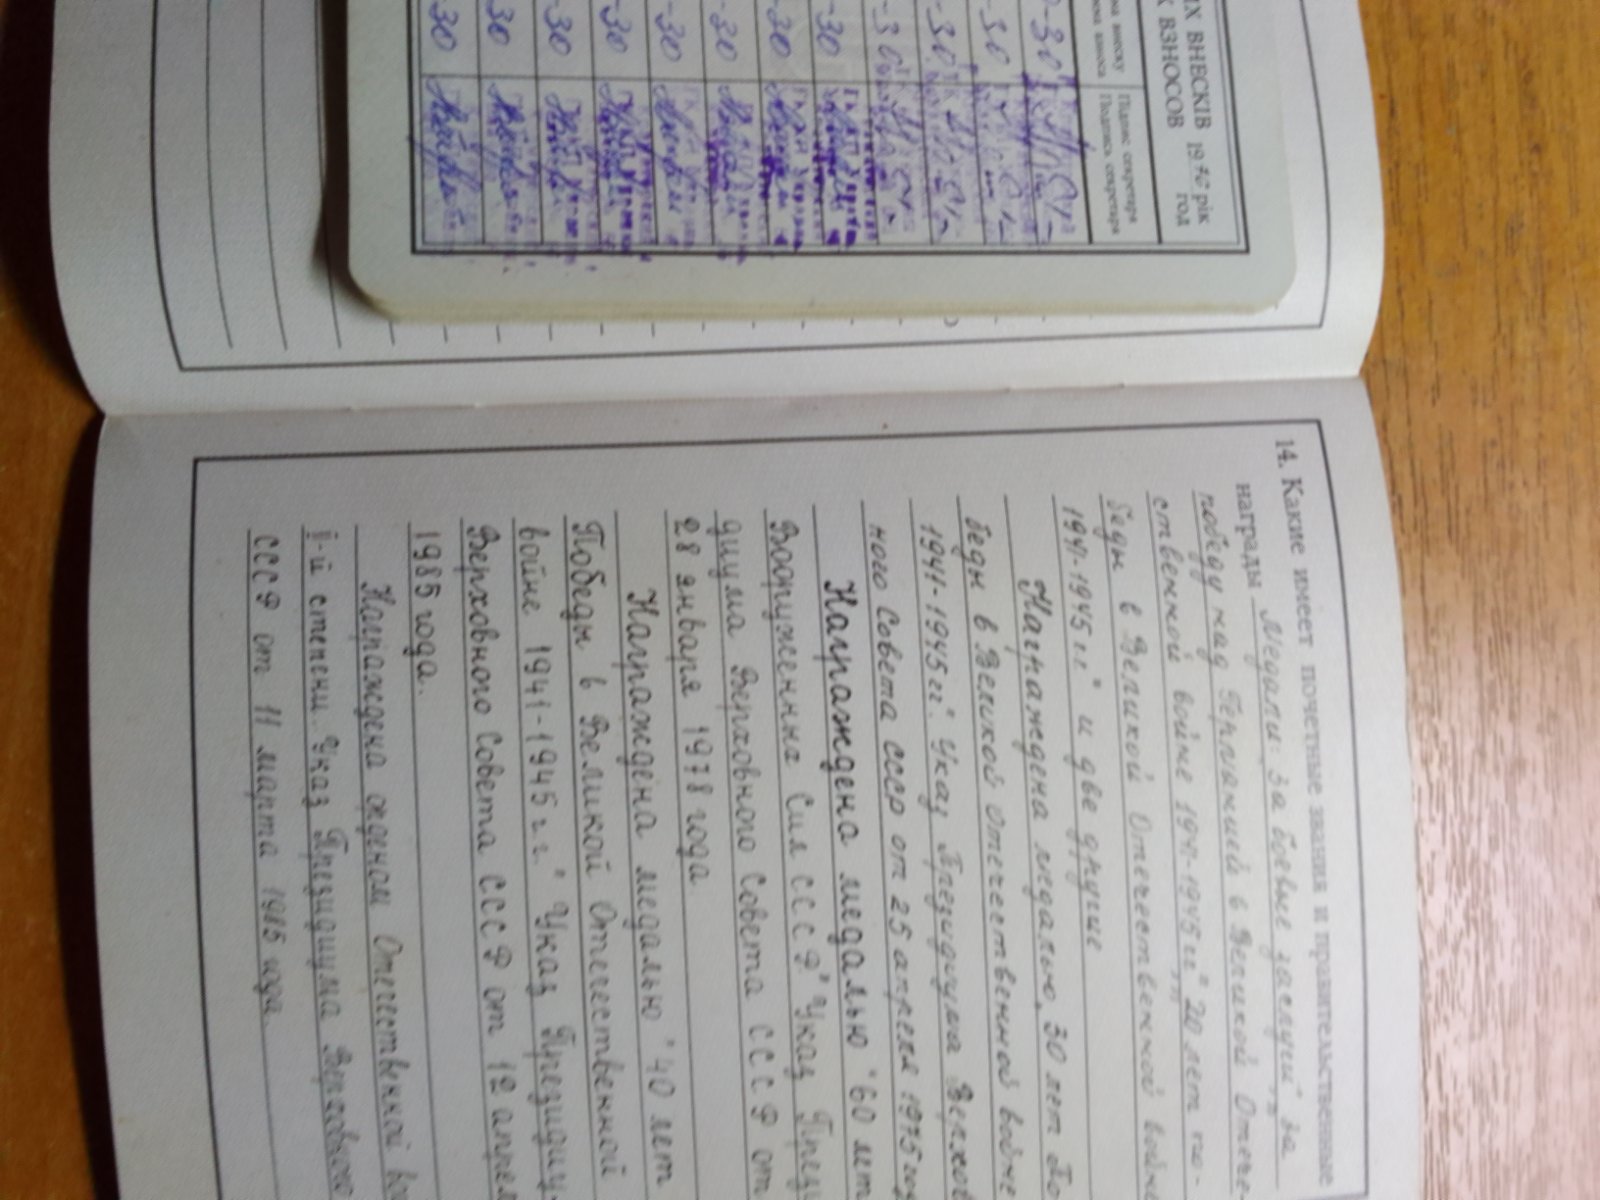 ИХ ВНЕСКІВ 1976 рік
Х ВЗНОСОВ год
ма внеску
мма взноса
Підпис секретаря
Подпись секретаря
-30
-30
-30
-30
-30
-30
-30
-30
-30
-30
-30
-30
14. Какие имеет почетные звания и правительственные
награды Медали: За боевые заслуги", "За
победу над Германией в Великой Отече-
ственной войне 1941-1945 гг" "20 лет по-
беды в Великой Отечественной войне
1941-1945 гг" и две другие
Награждена медалью "30 лет По
беды в Великой Отечественной войне
1941-1945 гг". Указ Президиума Верхов
ного Совета СССР от 25 апреля 1975 го
Награждена медалью "60 лет
Вооруженных Сил СССР" Указ Прези
диума Верховного Совета СССР от
28 января 1978 года
Награждена медалью "40 лет
Победы в Великой Отечественной
войне 1941-1945 г.г." Указ Президиу-
Верховного Совета СССР от 12 апрел
1985 года.
Награждена орденом Отечественной во
II-й степени. Указ Президиума Верховного
СССР от 11 марта 1985 года.